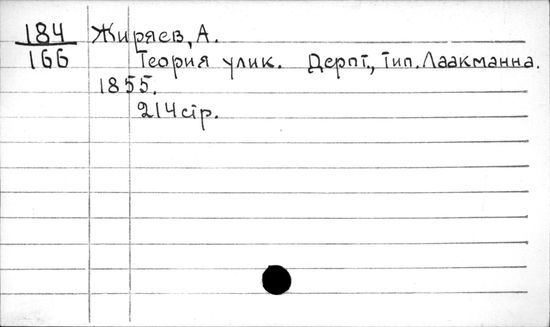 184 Жиряев, А.
166 Теория улик. Дерпт, тип. Лаакманна.
1855.
214 стр.